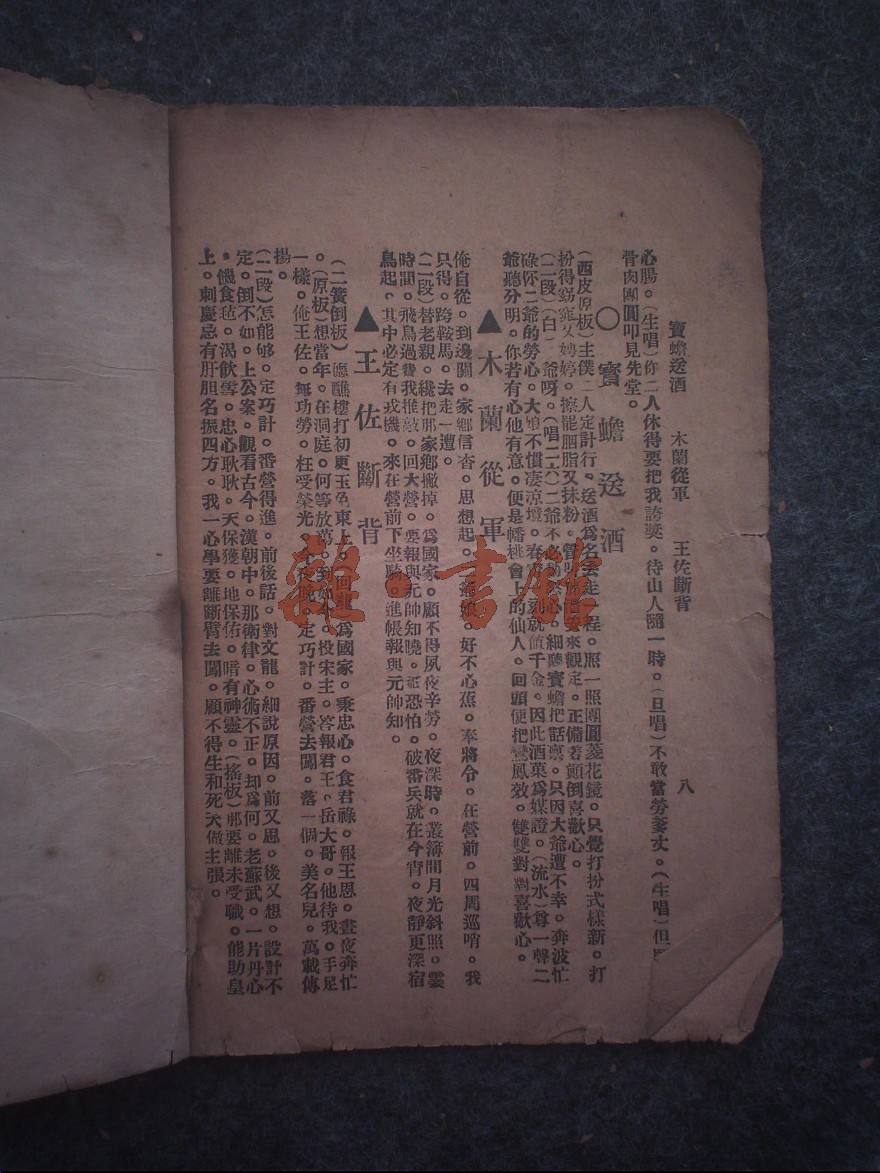 寶蟾送酒　木蘭從軍　王佐斷背　八
心腸。(生唱)你二人休得要把我誇奬。待山人隨一時。(旦唱)不敢當勞爹丈。(生唱)但
骨肉團圓叩見先堂。
○寶蟾送酒
(西皮原板)主僕二人定計行。送酒爲名去走一程。照一照團圓菱花鏡。只覺打扮式樣新。打
扮得窈窕又娉婷。擦罷胭脂又抹粉。來觀定。正備着顛倒喜歡心。
(二段)(白)爺呀。(唱二六)二爺不必心。細聽寶蟾把話禀。只因大爺遭不幸。奔波忙
碌你二爺的勞心。大娘不慣淒涼境。春宵刻就値千金。因此酒菓爲媒證。(流水)尊一聲二
爺聽分明。你若有心他有意。便是蟠桃會上的仙人。回頭便把鸞鳳效。雙雙對對喜歡心。
▲木蘭從軍
俺自從。到邊關。家鄉信杳。思想起。爺娘。好不心蕉。奉將令。在營前。四周巡哨。我
只得。跨鞍馬。去走一遭。
(二段)替老親。纔把那家鄉撇掉。爲國家。顧不得夙夜辛勞。夜深時。叢簿間月光斜照。霎
時間。飛鳥過費我推敲。回大營。要報與元帥知曉。恐怕。破番兵就在今宵。夜靜更深宿
鳥起。其中必定有戎機。來在營前下坐騎。進帳報與元帥知。
▲王佐斷背
(二簧倒板)譙樓打初更玉兔東上。(回龍)爲國家。秉忠心。食君祿。報王恩。晝夜奔忙
。(原板)想當年。在洞庭。何等放蕩。到如今。投宋主。答報君王。岳大哥。他待我。手足
一樣。俺王佐。無功勞。枉受榮光。今夜晚。定巧計。番營去闖。落一個。美名兒。萬載傳
揚。
(二段)怎能够。定巧計。番營得進。前後話。對文龍。細說原因。前又思。後又想。設計不
定。倒不如。上公案。觀看古今。漢朝中。那衛律。心術不正。却爲何。老蘇武。一片丹心
。饑食毡。渴飲雪。忠心耿耿。天保獲。地保佑。暗有神靈。(搖板)那要離未受職。能助皇
上。刺慶忌有肝胆名振四方。我一心學要離斷臂去闖。顧不得生和死天做主張。